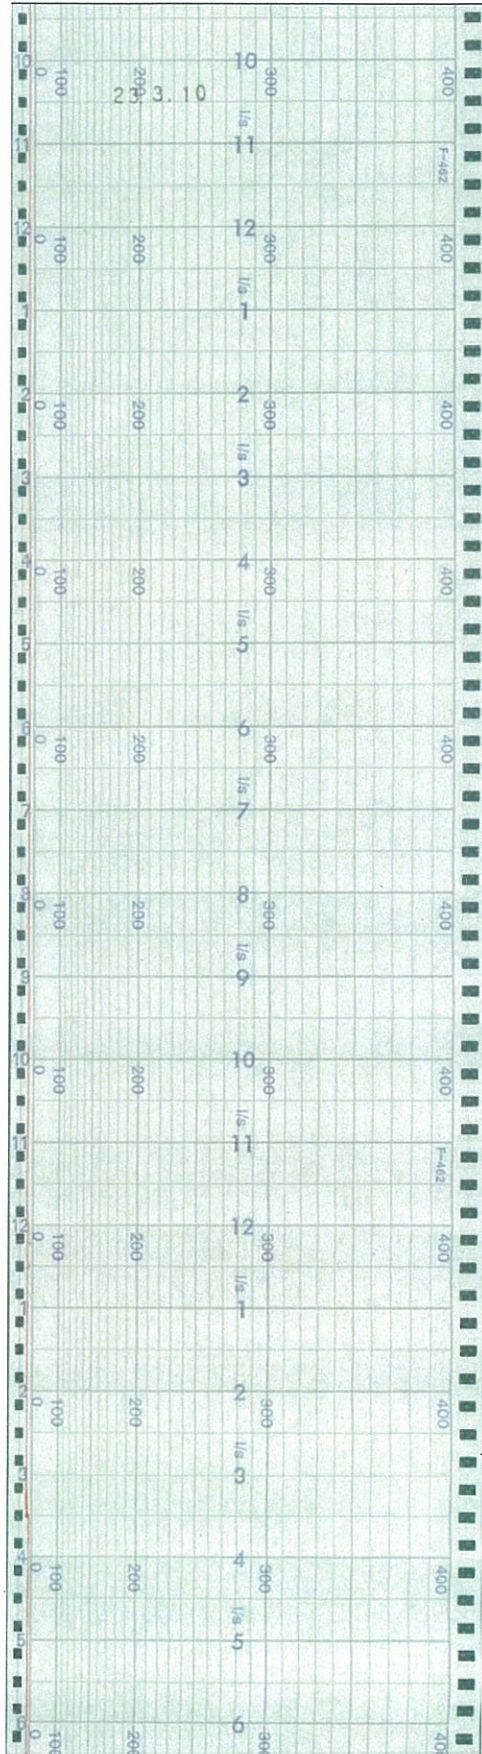 10 10
0 100 200 300 400
23.3.10
l/s
11 11 F-462
12 12
0 100 200 300 400
l/s
1 1
2 2
0 100 200 300 400
l/s
3 3
4 4
0 100 200 300 400
l/s
5 5
6 6
0 100 200 300 400
l/s
7 7
8 8
0 100 200 300 400
l/s
9 9
10 10
0 100 200 300 400
l/s
11 11 F-462
12 12
0 100 200 300 400
l/s
1 1
2 2
0 100 200 300 400
l/s
3 3
4 4
0 100 200 300 400
l/s
5 5
6 6
0